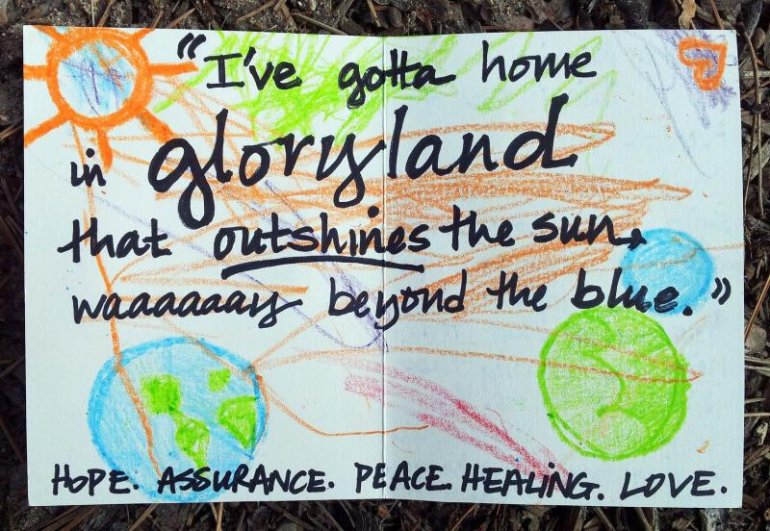 "I've gotta home
in gloryland
that outshines the sun,
waaaaaay beyond the blue."
HOPE. ASSURANCE. PEACE. HEALING. LOVE.